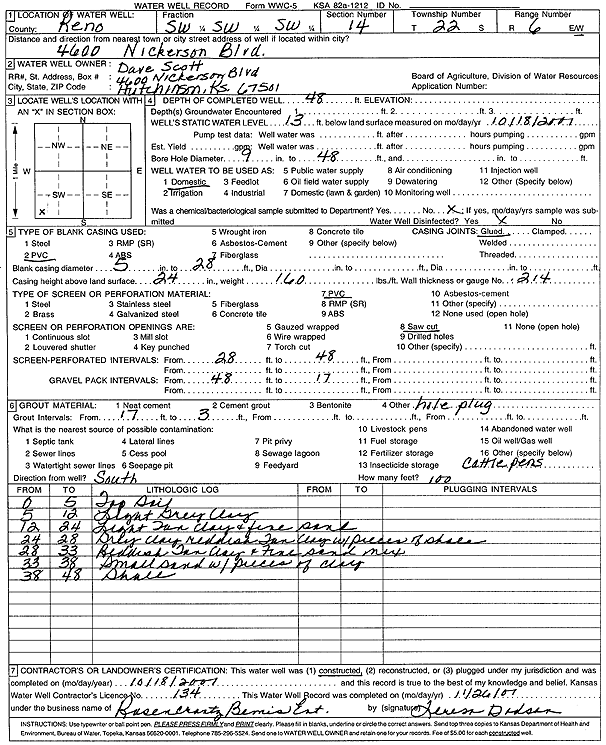 WATER WELL RECORD Form WWC-5 KSA 82a-1212 ID No.
1 LOCATION OF WATER WELL: Fraction Section Number Township Number Range Number
County: Reno SW ¼ SW ¼ SW ¼ 14 T 22 S R 6 E/W
Distance and direction from nearest town or city street address of well if located within city?
4600 Nickerson Blvd.
2 WATER WELL OWNER: Dave Scott
RR#, St. Address, Box # : 4600 Nickerson Blvd Board of Agriculture, Division of Water Resources
City, State, ZIP Code : Hutchinson, KS 67501 Application Number:
3 LOCATE WELL'S LOCATION WITH AN "X" IN SECTION BOX:
N
NW NE
W E
SW SE
X
S
1 Mile
4 DEPTH OF COMPLETED WELL 48 ft. ELEVATION:
Depth(s) Groundwater Encountered 1 ft. 2. ft. 3. ft.
WELL'S STATIC WATER LEVEL 13 ft. below land surface measured on mo/day/yr 10/18/2007
Pump test data: Well water was ft. after hours pumping gpm
Est. Yield gpm: Well water was ft. after hours pumping gpm
Bore Hole Diameter 9 in. to 48 ft., and in. to ft.
WELL WATER TO BE USED AS: 5 Public water supply 8 Air conditioning 11 Injection well
1 Domestic 3 Feedlot 6 Oil field water supply 9 Dewatering 12 Other (Specify below)
2 Irrigation 4 Industrial 7 Domestic (lawn & garden) 10 Monitoring well
Was a chemical/bacteriological sample submitted to Department? Yes No X ; If yes, mo/day/yrs sample was submitted
Water Well Disinfected? Yes X No
5 TYPE OF BLANK CASING USED: 5 Wrought iron 8 Concrete tile CASING JOINTS: Glued Clamped
1 Steel 3 RMP (SR) 6 Asbestos-Cement 9 Other (specify below) Welded
2 PVC 4 ABS 7 Fiberglass Threaded
Blank casing diameter 5 in. to 28 ft., Dia in. to ft., Dia in. to ft.
Casing height above land surface 24 in., weight 160 lbs./ft. Wall thickness or gauge No. 214
TYPE OF SCREEN OR PERFORATION MATERIAL: 7 PVC 10 Asbestos-cement
1 Steel 3 Stainless steel 5 Fiberglass 8 RMP (SR) 11 Other (specify)
2 Brass 4 Galvanized steel 6 Concrete tile 9 ABS 12 None used (open hole)
SCREEN OR PERFORATION OPENINGS ARE: 5 Gauzed wrapped 8 Saw cut 11 None (open hole)
1 Continuous slot 3 Mill slot 6 Wire wrapped 9 Drilled holes
2 Louvered shutter 4 Key punched 7 Torch cut 10 Other (specify) ft.
SCREEN-PERFORATED INTERVALS: From 28 ft. to 48 ft., From ft. to ft.
From ft. to ft., From ft. to ft.
GRAVEL PACK INTERVALS: From 48 ft. to 17 ft., From ft. to ft.
From ft. to ft., From ft. to ft.
6 GROUT MATERIAL: 1 Neat cement 2 Cement grout 3 Bentonite 4 Other hole plug
Grout Intervals: From 17 ft. to 3 ft., From ft. to ft., From ft. to ft.
What is the nearest source of possible contamination: 10 Livestock pens 14 Abandoned water well
1 Septic tank 4 Lateral lines 7 Pit privy 11 Fuel storage 15 Oil well/Gas well
2 Sewer lines 5 Cess pool 8 Sewage lagoon 12 Fertilizer storage 16 Other (specify below)
3 Watertight sewer lines 6 Seepage pit 9 Feedyard 13 Insecticide storage Cattle pens
Direction from well? South How many feet? 100
FROM TO LITHOLOGIC LOG FROM TO PLUGGING INTERVALS
0 5 Top Soil
5 12 Light Grey Clay
12 24 Light Tan Clay & fine sand
24 28 Grey Clay, Reddish Tan Clay w/ pieces of shale
28 33 Reddish Tan Clay & Fine sand mix
33 38 Small sand w/ pieces of clay
38 48 Shale
7 CONTRACTOR'S OR LANDOWNER'S CERTIFICATION: This water well was (1) constructed, (2) reconstructed, or (3) plugged under my jurisdiction and was
completed on (mo/day/year) 10/18/2007 and this record is true to the best of my knowledge and belief. Kansas
Water Well Contractor's Licence No. 134 This Water Well Record was completed on (mo/day/yr) 11/26/07
under the business name of Rosencrantz Bemis Ent. by (signature) Teresa Dodson
INSTRUCTIONS: Use typewriter or ball point pen. PLEASE PRESS FIRMLY and PRINT clearly. Please fill in blanks, underline or circle the correct answers. Send top three copies to Kansas Department of Health and
Environment, Bureau of Water, Topeka, Kansas 66620-0001. Telephone 785-296-5524. Send one to WATER WELL OWNER and retain one for your records. Fee of $5.00 for each constructed well.